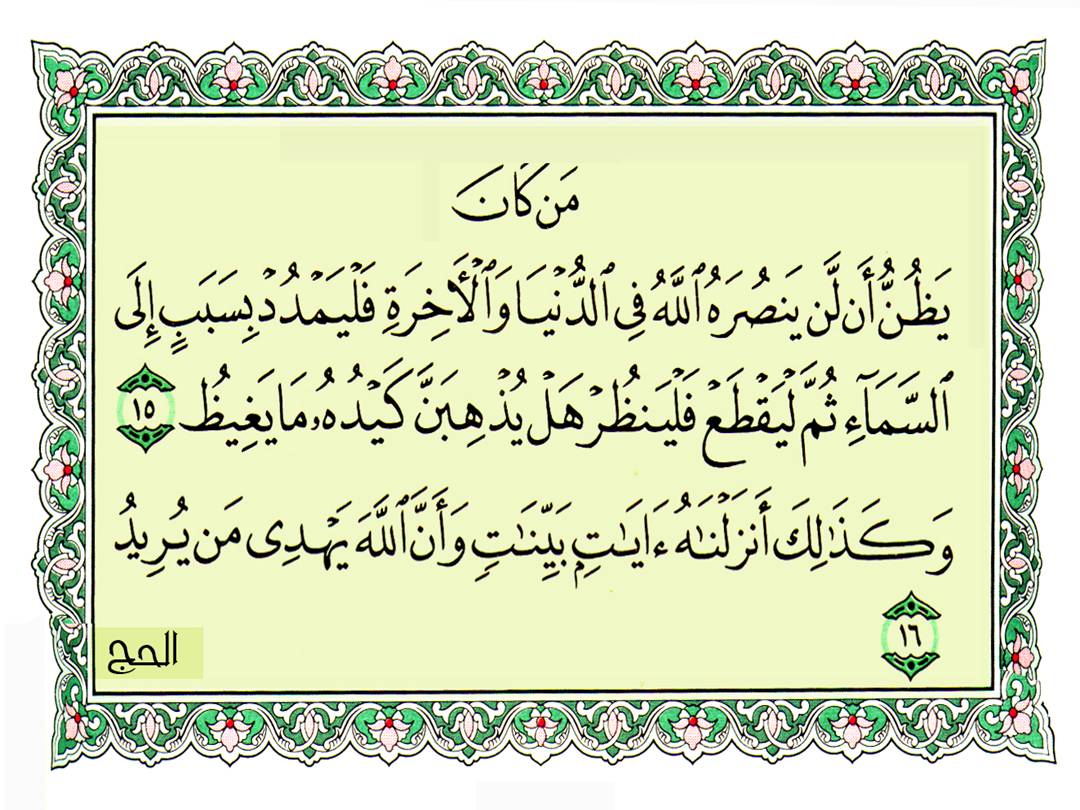 مَن كَانَ
يَظُنُّ أَن لَّن يَنصُرَهُ ٱللَّهُ فِي ٱلدُّنْيَا وَٱلْأَخِرَةِ فَلْيَمْدُدْ بِسَبَبٍ إِلَى
ٱلسَّمَآءِ ثُمَّ لْيَقْطَعْ فَلْيَنظُرْ هَلْ يُذْهِبَنَّ كَيْدُهُۥ مَا يَغِيظُ ١٥
وَكَذَٰلِكَ أَنزَلْنَٰهُ ءَايَٰتٍۭ بَيِّنَٰتٍ وَأَنَّ ٱللَّهَ يَهْدِى مَن يُرِيدُ
١٦
الحج